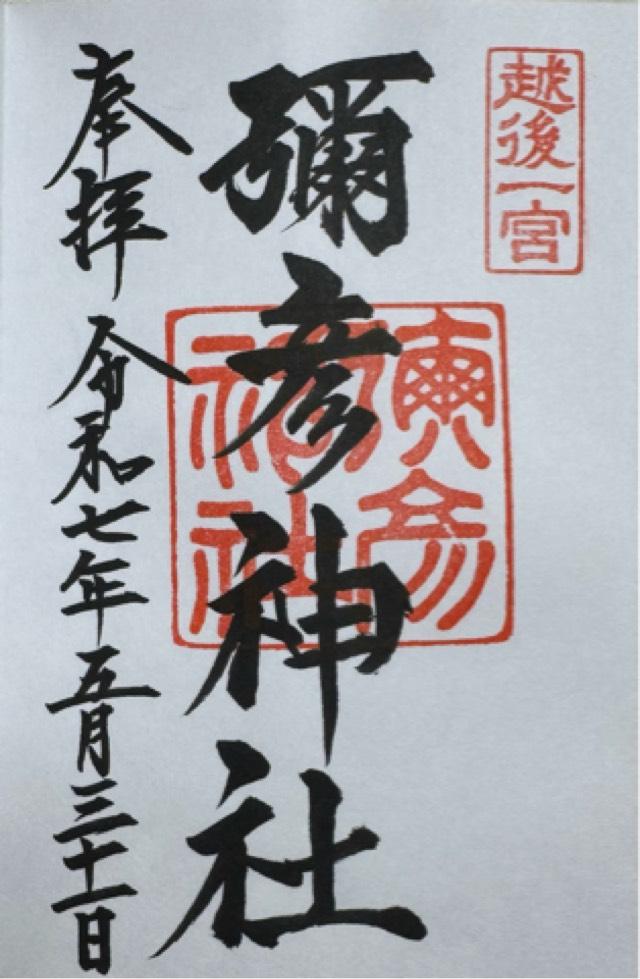 越後一宮
彌彦神社
彌彦
神社
奉拝 令和七年五月三十一日